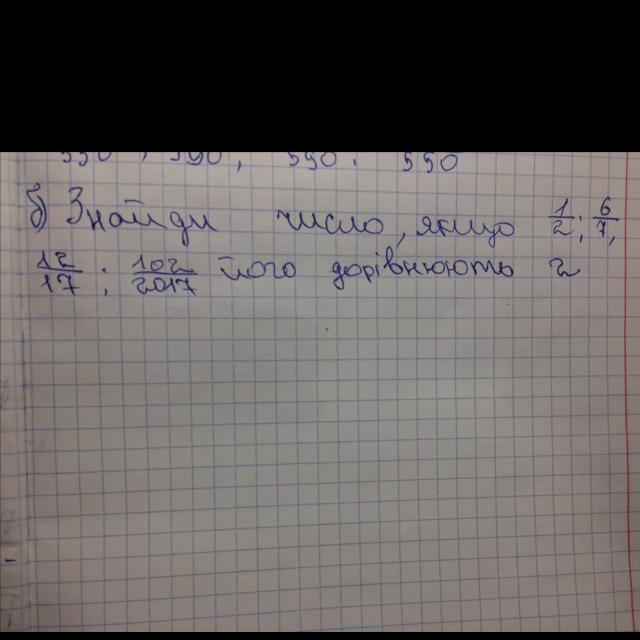 550 ; 390 , 550 ; 550
б) Знайди число, якщо 1/2; 6/7,
12/17; 102/2017 його дорівнюють 2